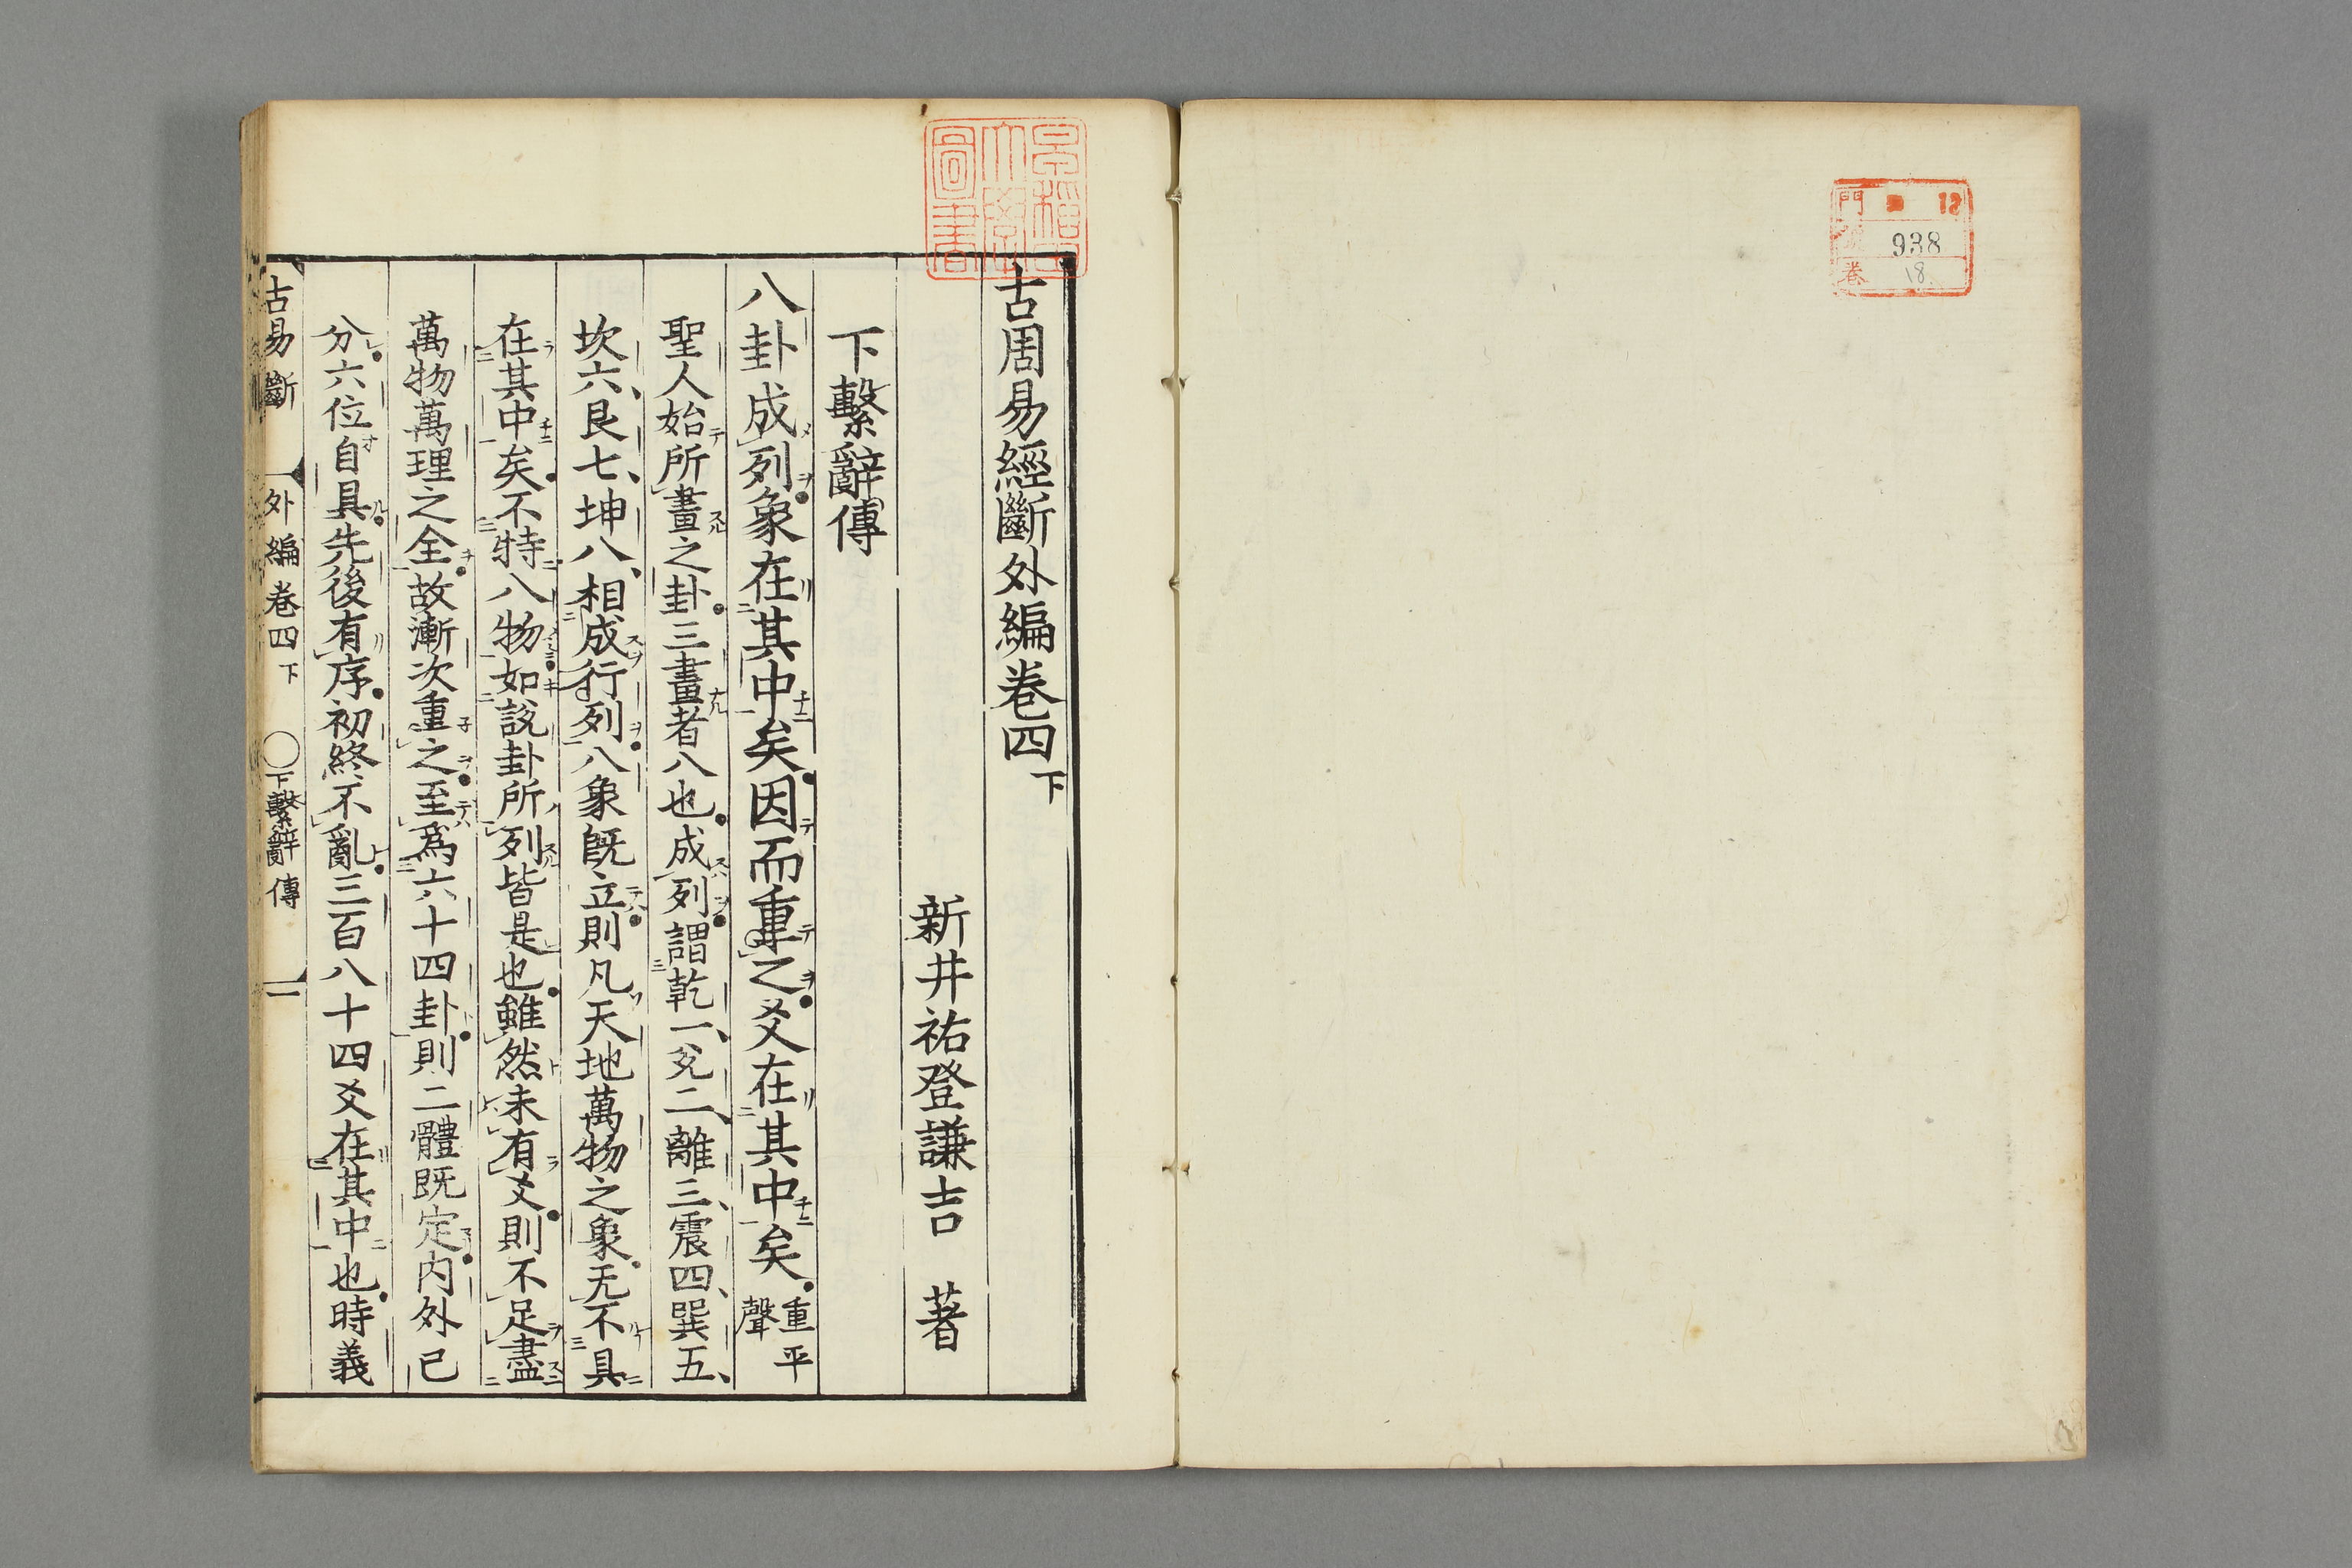 門 12
號 938
卷 18
早稻田大學圖書
古周易經斷外編卷四下
新井祐登謙吉 著
下繫辭傳
八卦成列象在其中矣因而重之爻在其中矣重平聲
聖人始所畫之卦三畫者八也成列謂乾一兌二離三震四巽五
坎六艮七坤八相成行列八象既立則凡天地萬物之象无不具
在其中矣不特八物如說卦所列皆是也雖然未有爻則不足盡
萬物萬理之全故漸次重之至爲六十四卦則二體既定內外已
分六位自具先後有序初終不亂三百八十四爻在其中也時義
古易斷 外編卷四下 ○下繫辭傳 一